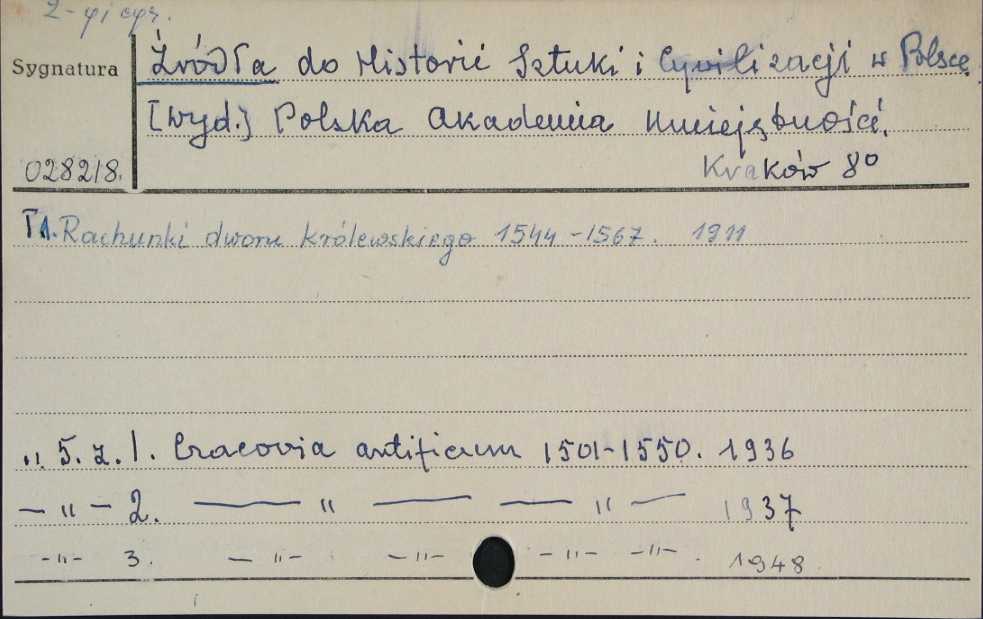 Sygnatura
Źródła do Historii Sztuki i Cywilizacji w Polsce
[wyd.] Polska Akademia Umiejętności.
028218. Kraków 8°
T1. Rachunki dworu królewskiego 1544-1567. 1911
„ 5. z. 1. Cracovia artificum 1501-1550. 1936
— „ — 2. — „ — — „ — 1937
-„- 3. — „- -„- -„- -„- . 1948